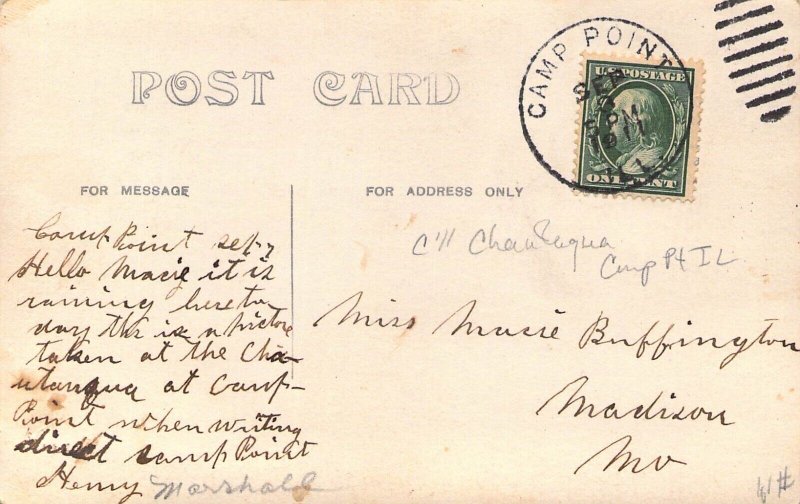 CAMP POINT
SEP
PM
1911
ILL
U.S. POSTAGE
ONE CENT
POST CARD
FOR MESSAGE
FOR ADDRESS ONLY
Camp Point sep 7
Hello Macie it is
raining here to
day this is a picture
taken at the Cha-
utauqua at Camp-
Point when writing
direct camp Point
Henry Marshall
C'11 Chautauqua
Camp Pt IL
Miss Macie Buffington
Madison
Mo